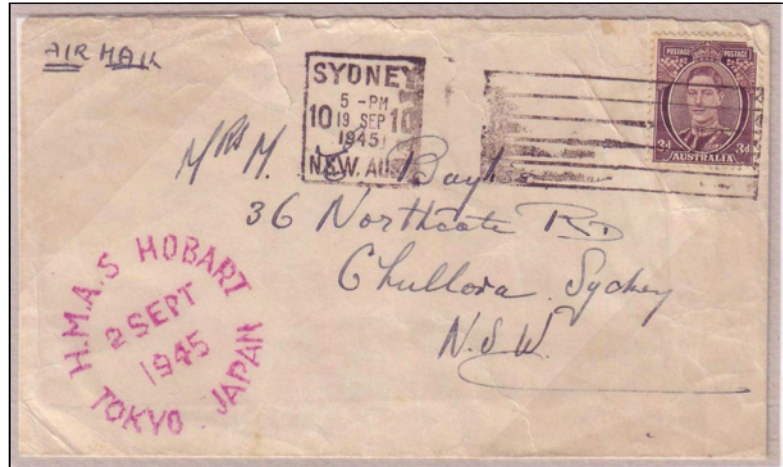 AIR MAIL
SYDNEY
5 - PM
10 19 SEP 10
1945
N.S.W. AUS
POSTAGE POSTAGE
3d 3d
AUSTRALIA
Mrs M.
36 Northcote RD
Chullora. Sydney
N.S.W.
H.M.A.S HOBART
2 SEPT
1945
TOKYO JAPAN